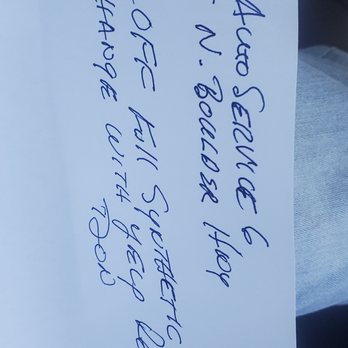 AUTO SERVICE 6
N. BOULDER HWY
OFF full SYNTHETIC
HANGE WITH YELP Re
DON